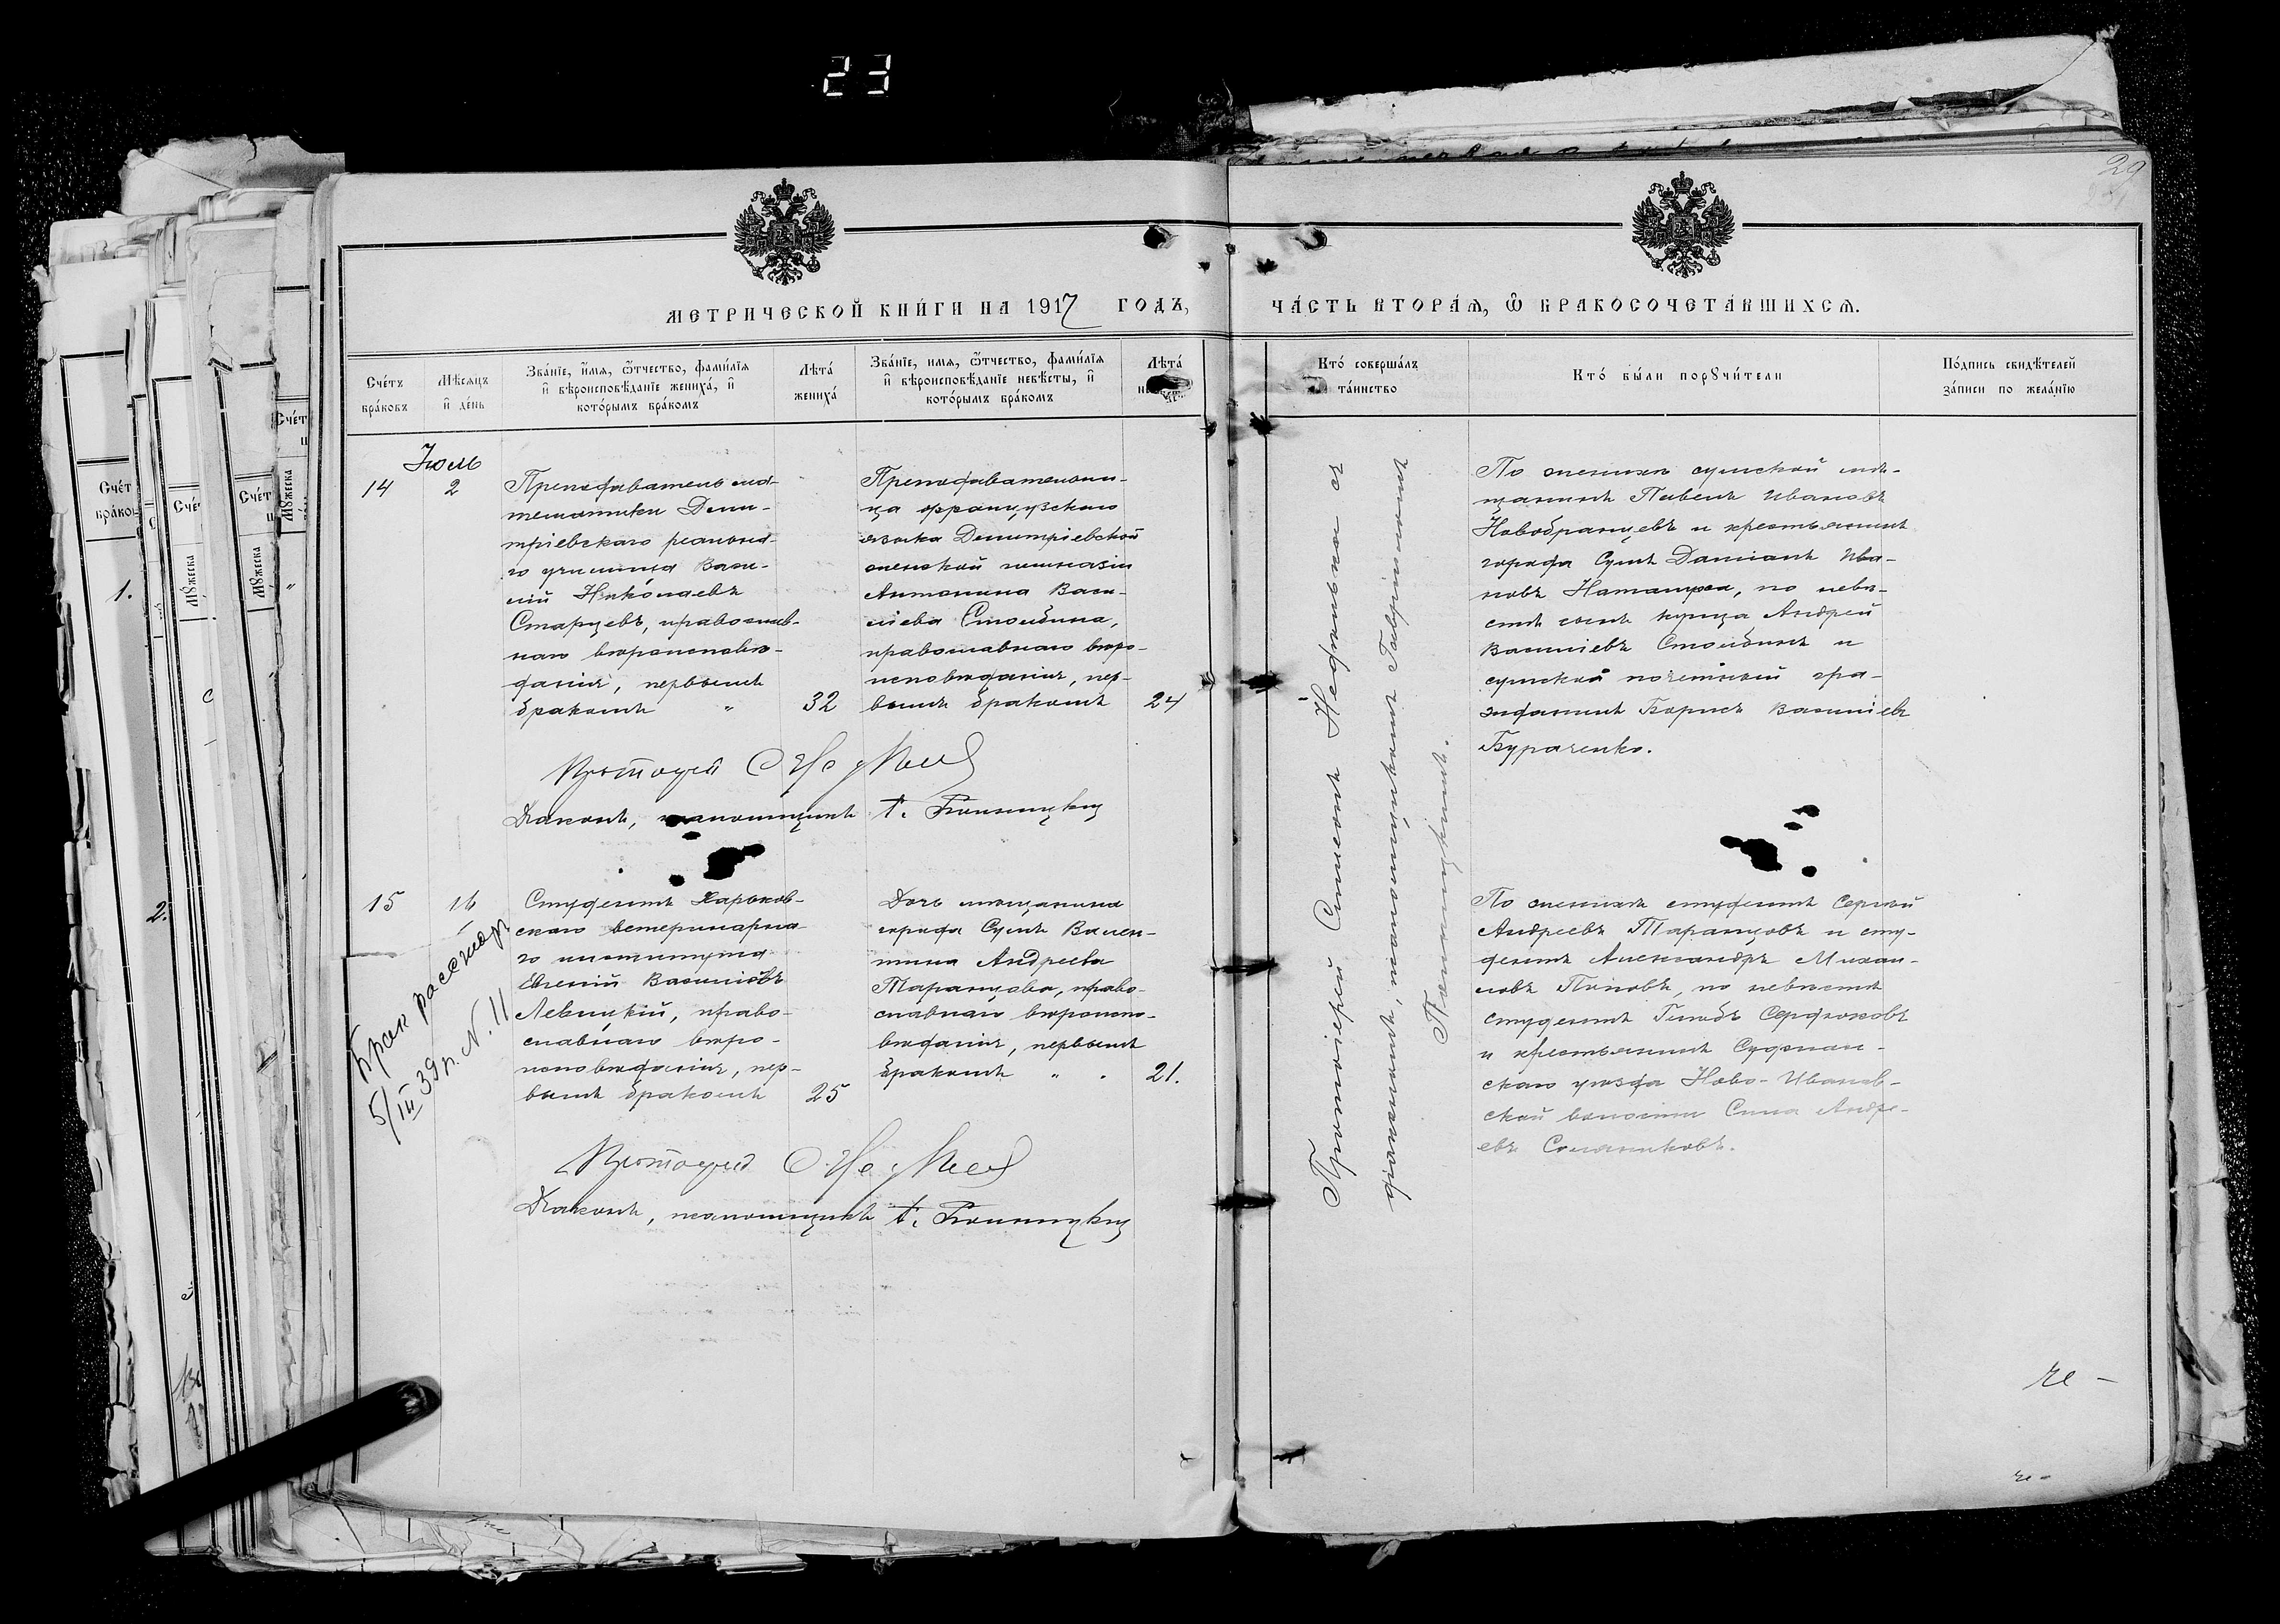 23
29
МЕТРИЧЕСКОЙ КНИ́ГИ НА 1917 ГОДЪ,
ЧА́СТЬ ВТОРА́Ѧ, Ѡ҆ БРАКОСОЧЕТА́ВШИХСѦ.
Сче́тъ бра́ковъ
Мѣ́сѧцъ и҆ де́нь
Зва́нїе, и҆́мѧ, ѻ҆́тчество, фами́лїѧ
и҆ вѣроисповѣ́данїе жениха̀, и҆
кото́рымъ бра́комъ
Лѣта̀ жениха̀
Зва́нїе, имѧ, ѻ҆́тчество, фами́лїѧ
и҆ вѣроисповѣ́данїе невѣ́сты, и҆
кото́рымъ бра́комъ
Лѣта̀
Кто́ соверша́лъ
та́инство
Кто́ бы́ли порꙋчи́тели
По́дпись свидѣ́телей
за́писи по жела́нїю
Іюль
14
2
Преподаватель ма-
тематики Дми-
тріевскаго реальна-
го училища Васи-
лій Николаевъ
Старцевъ, православ-
наго вѣроисповѣ-
данія, первымъ
бракомъ "
32
Преподавательни-
ца французскаго
языка Дмитріевской
женской гимназіи
Антонина Васи-
ліева Столбина,
православнаго вѣро-
исповѣданія, пер-
вымъ бракомъ
24
Протоіерей Симеонъ
діакономъ, псаломщикомъ Гавріиломъ
По женихѣ сумской мѣ-
щанинъ Павелъ Ивановъ
Новобранцевъ и крестьянинъ
города Сумъ Даміанъ Ива-
новъ, по невѣ-
стѣ сынъ купца Андрей
Васильевъ Столбинъ и
сумской почетный гра-
жданинъ Борисъ Васильевъ
Бураченко.
Протоіерей С.
Діаконъ, псаломщикъ Г.
15
16
Студентъ Харьков-
скаго ветеринарна-
го института
Евгеній Васильевъ
Левицкій, право-
славнаго вѣро-
исповѣданія, пер-
вымъ бракомъ
25
Дочь мѣщанина
города Сумъ Вален-
тина Андреева
Таранцова, право-
славнаго вѣроиспо-
вѣданія, первымъ
бракомъ " .
21.
По женихѣ студентъ Сергѣй
Андреевъ Таранцовъ и сту-
дентъ Александръ Михаи-
ловъ Поповъ, по невѣстѣ
студентъ Глѣбъ Сердюковъ
и крестьянинъ Суджан-
скаго уѣзда Ново-Иванов-
ской волости Сила Андре-
евъ
Брак расторг
5/III 39 р. N. 11
Протоіерей С.
Діаконъ, псаломщикъ Г.
Сче́т
бра́ко
1.
2.
Мꙋжеска
Мꙋжеска
Мꙋжеска